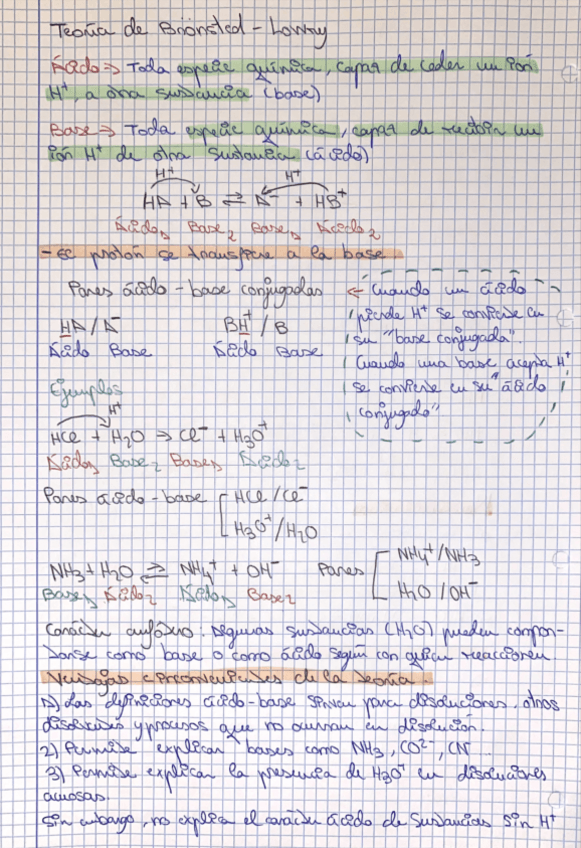 Teoría de Brönsted-Lowry
Ácido ⇒ Toda especie química, capaz de ceder un ión
H⁺, a otra sustancia (base)
Base ⇒ Toda especie química, capaz de recibir un
ión H⁺ de otra sustancia (ácido)
H⁺ H⁺
HA + B ⇄ A⁻ + HB⁺
Ácido₁ Base₂ Base₁ Ácido₂
- El protón se transfiere a la base
Pares ácido-base conjugadas
HA/A⁻ BH⁺/B
Ácido Base Ácido Base
← Cuando un ácido
pierde H⁺ se convierte en
su "base conjugada".
Cuando una base acepta H⁺
se convierte en su "ácido
conjugado"
Ejemplos
H⁺
HCl + H₂O ⇒ Cl⁻ + H₃O⁺
Ácido₁ Base₂ Base₁ Ácido₂
Pares ácido-base [ HCl/Cl⁻
H₃O⁺/H₂O
NH₃ + H₂O ⇄ NH₄⁺ + OH⁻ Pares [ NH₄⁺/NH₃
H₂O/OH⁻
Base₁ Ácido₂ Ácido₁ Base₂
Carácter anfótero: Algunas sustancias (H₂O) pueden compor-
tarse como base o como ácido según con quien reaccionen
Ventajas e inconvenientes de la teoría.
1) Las definiciones ácido-base sirven para disoluciones, otros
disolventes y procesos que no ocurran en disolución.
2) Permite explicar bases como NH₃, CO²⁻, CN⁻
3) Permite explicar la presencia de H₃O⁺ en disoluciones
acuosas.
Sin embargo, no explica el carácter ácido de sustancias sin H⁺